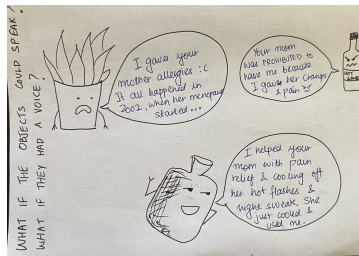 WHAT IF THE OBJECTS COULD SPEAK.
WHAT IF THEY HAD A VOICE?
I gave your
mother allergies :C
It all happened in
2002, when her menopause
started...
Your mom
was PROHIBITED to
have me because
I gave her cramps
& pain
HOT
I helped your
mom with pain
relief & cooling off
her hot flashes &
night sweats. She
just cooled &
used me.